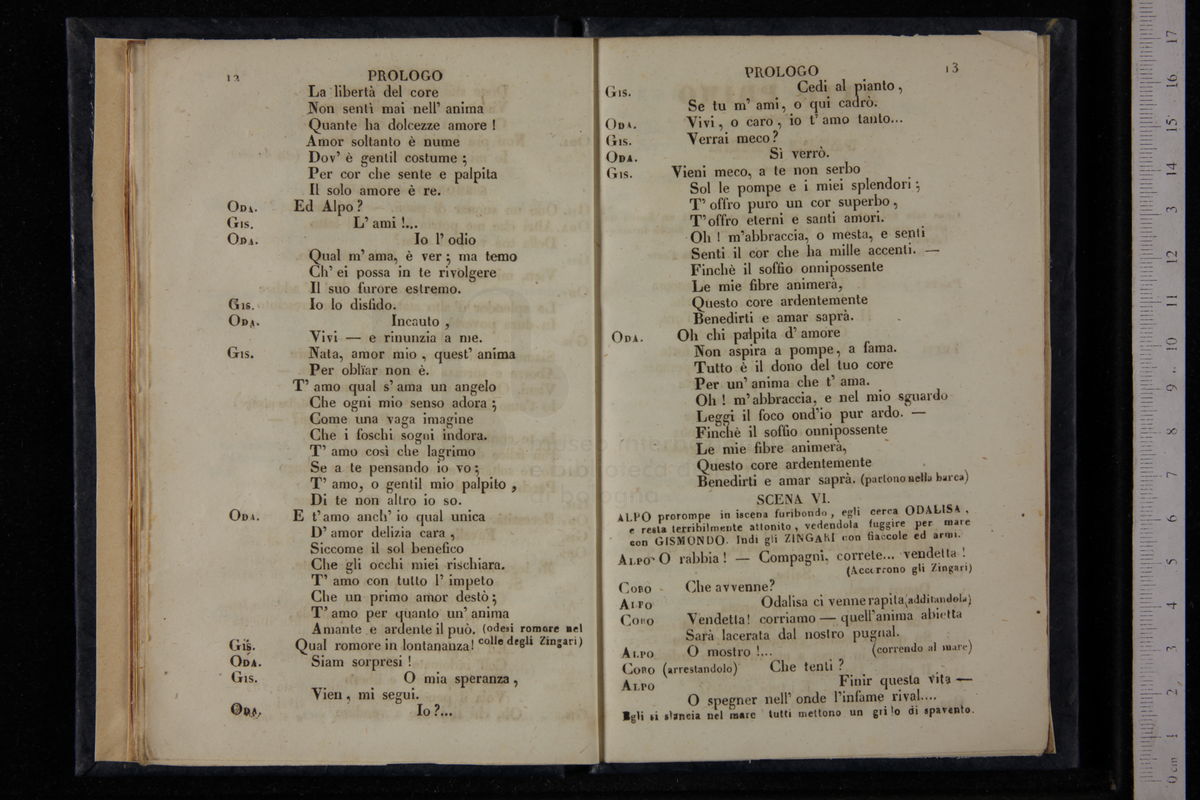 12
PROLOGO
La libertà del core
Non sentì mai nell' anima
Quante ha dolcezze amore !
Amor soltanto è nume
Dov' è gentil costume ;
Per cor che sente e palpita
Il solo amore è re.
ODA. Ed Alpo ?
GIS. L' ami !...
ODA. Io l' odio
Qual m' ama, è ver ; ma temo
Ch' ei possa in te rivolgere
Il suo furore estremo.
GIS. Io lo disfido.
ODA. Incauto ,
Vivi — e rinunzia a me.
GIS. Nata, amor mio , quest' anima
Per oblïar non è.
T' amo qual s' ama un angelo
Che ogni mio senso adora ;
Come una vaga imagine
Che i foschi sogni indora.
T' amo così che lagrimo
Se a te pensando io vo ;
T' amo, o gentil mio palpito ,
Di te non altro io so.
ODA. E t'amo anch' io qual unica
D' amor delizia cara ,
Siccome il sol benefico
Che gli occhi miei rischiara.
T' amo con tutto l' impeto
Che un primo amor destò ;
T' amo per quanto un' anima
Amante e ardente il può. (odesi romore nel
GIS. Qual romore in lontananza! colle degli Zingari)
ODA. Siam sorpresi !
GIS. O mia speranza ,
Vien , mi segui.
ODA. Io ?...
PROLOGO
13
GIS. Cedi al pianto ,
Se tu m' ami, o qui cadrò.
ODA. Vivi , o caro , io t' amo tanto...
GIS. Verrai meco ?
ODA. Sì verrò.
GIS. Vieni meco, a te non serbo
Sol le pompe e i miei splendori ;
T' offro puro un cor superbo ,
T' offro eterni e santi amori.
Oh ! m'abbraccia, o mesta, e senti
Senti il cor che ha mille accenti. —
Finchè il soffio onnipossente
Le mie fibre animerà,
Questo core ardentemente
Benedirti e amar saprà.
ODA. Oh chi palpita d' amore
Non aspira a pompe, a fama.
Tutto è il dono del tuo core
Per un' anima che t' ama.
Oh ! m'abbraccia, e nel mio sguardo
Leggi il foco ond'io pur ardo. —
Finchè il soffio onnipossente
Le mie fibre animerà,
Questo core ardentemente
Benedirti e amar saprà. (partono nella barca)
SCENA VI.
ALPO prorompe in iscena furibondo , egli cerca ODALISA ,
e resta terribilmente attonito , vedendola fuggire per mare
con GISMONDO. Indi gli ZINGARI con fiaccole ed armi.
ALPO O rabbia ! — Compagni, correte... vendetta !
(Accorrono gli Zingari)
CORO Che avvenne?
ALPO Odalisa ci venne rapita (additandola)
CORO Vendetta! corriamo — quell'anima abietta
Sarà lacerata dal nostro pugnal.
ALPO O mostro !... (correndo al mare)
CORO (arrestandolo) Che tenti ?
ALPO Finir questa vita —
O spegner nell' onde l'infame rival....
Egli si slancia nel mare tutti mettono un grilo di spavento.